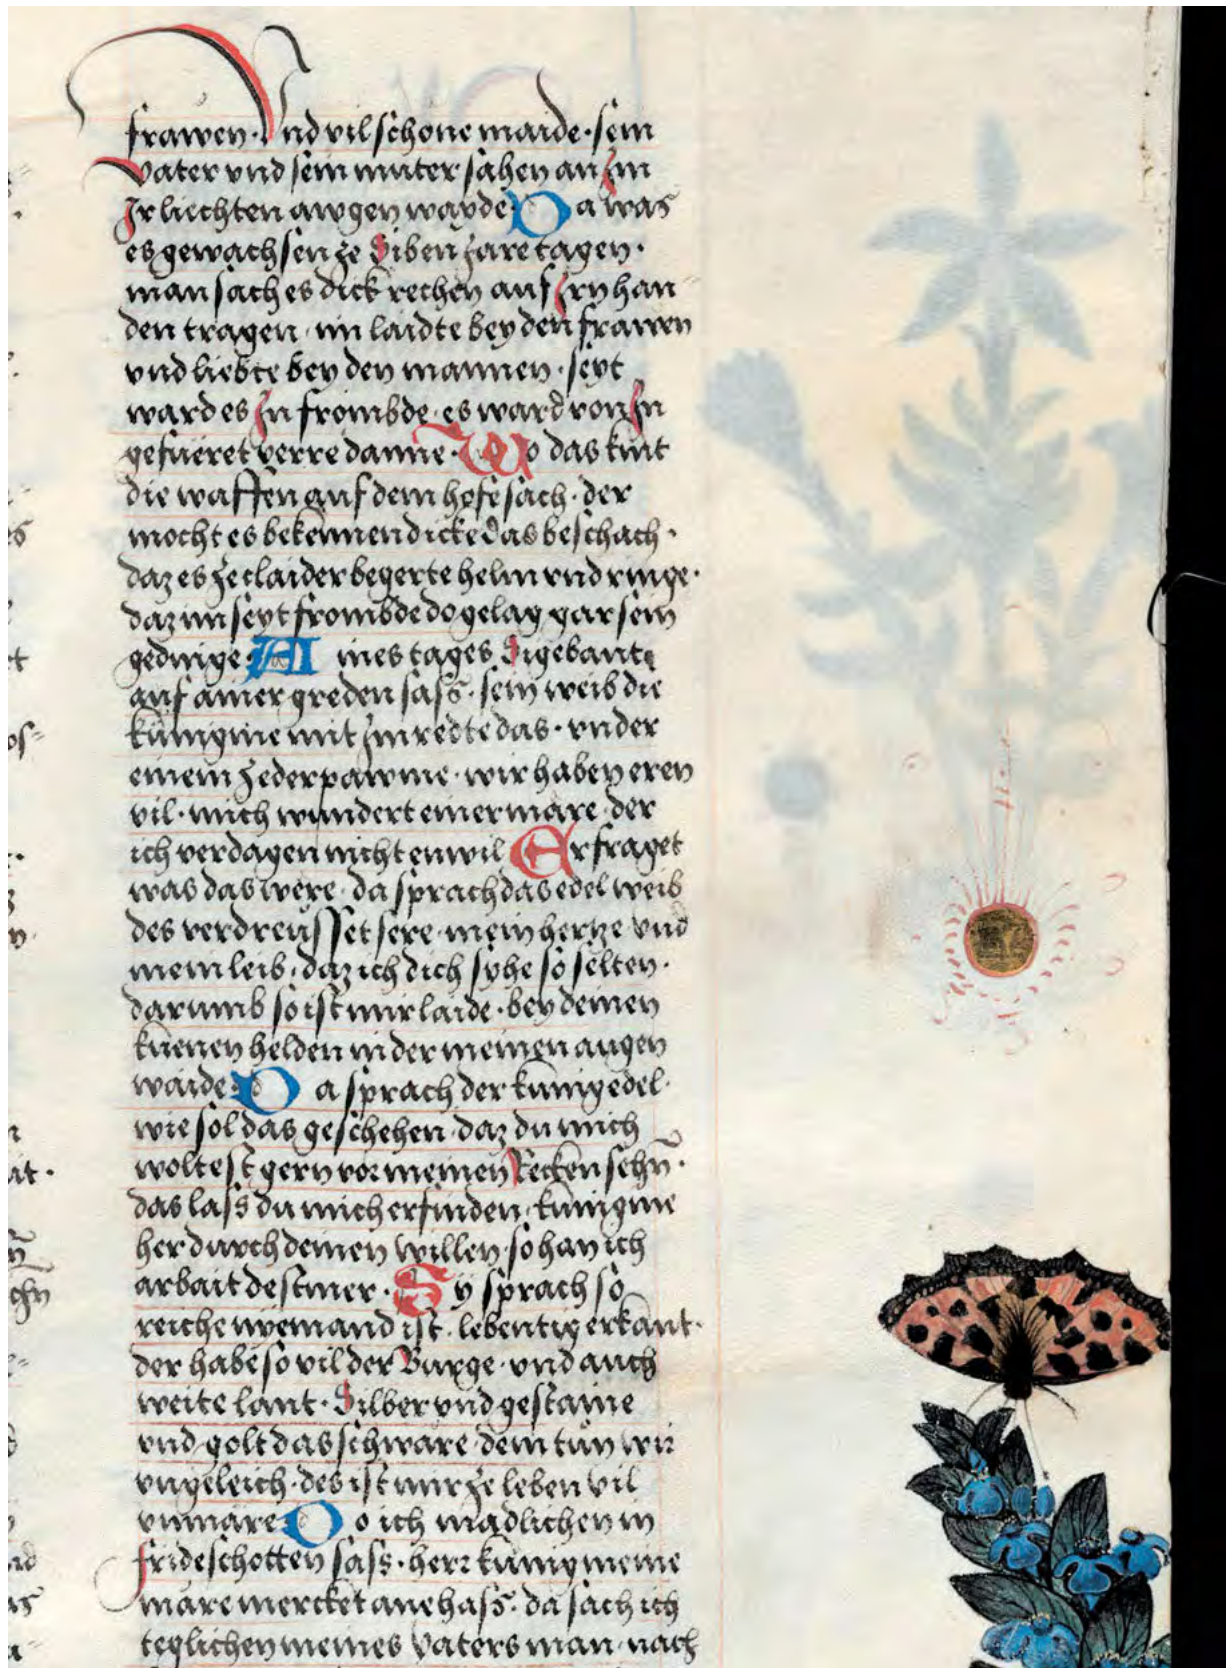 frawen · Vnd vil schone maide · sein
Vater vnd sein muter sahen an Im
Ir liechten awgen wayde · Da was
es gewachsen ze Siben Jare tagen ·
man sach es dick rechen auf Irn han
den tragen · im laidte bey den frawen
vnd liebte bey den mannen · seyt
ward es In frömbde · es ward von In
gefüeret verre danne · Wo das kint
die waffen auf dem hofe sach · der
mocht es bekennen dicke das beschach ·
daz es ze claider begerte helm vnd ringe ·
daz im seyt frömbde do gelag gar sein
gedinge · Aines tages Sigebant
auf ainer greden sass · sein weib die
künigine mit Im redte das · vnder
einem Zederpawme · wir haben eren
vil · mich wundert einer märe · der
ich verdagen nicht en wil Er fraget
was das were · da sprach das edel weib
des verdreüsset sere · mein hertze vnd
mein leib · daz ich dich syhe so selten ·
darumb so ist mir laide · bey deinen
küenen helden in der meinen augen
waide · Da sprach der künig edel ·
wie sol das geschehen · daz du mich
woltest gern vor meinen Recken sehn̄ ·
das lass du mich erfinden · künigine
her durch deinen willen · so han ich
arbait dest mer · Sy sprach so
reiche nyemand ist · lebentig erkant ·
der habe so vil der Burge · vnd auch
weite lant · Silber vnd gestaine
vnd golt das schware · dem tůn wir
vngeleich · des ist mir ze leben vil
vnmäre · Do ich mädlichen in
frideschotten sass · herr künig meine
märe mercket ane hass · da sach ich
teglichen meines Vaters man · nach